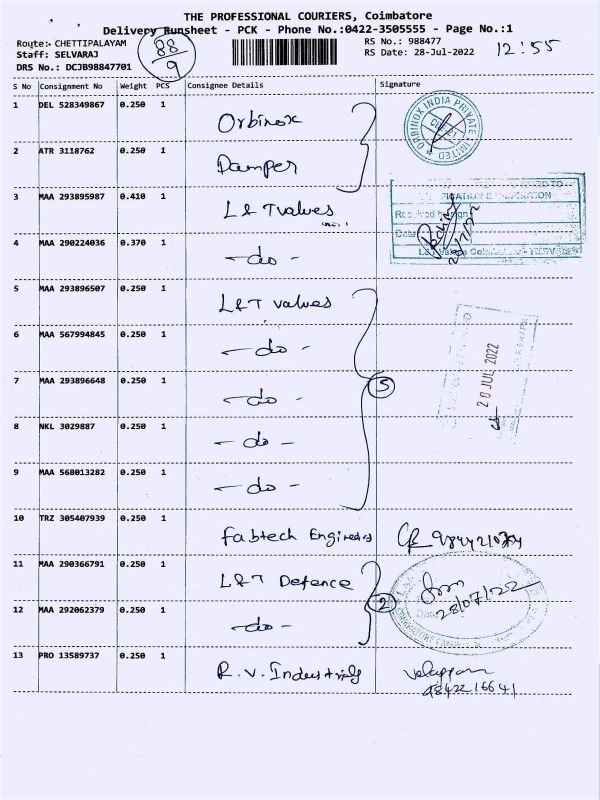 THE PROFESSIONAL COURIERS, Coimbatore
Delivery Runsheet - PCK - Phone No.:0422-3505555 - Page No.:1
Route:- CHETTIPALAYAM
Staff: SELVARAJ
DRS No.: DCJB98847701
88
9
RS No.: 988477
RS Date: 28-Jul-2022
12:55
S No Consignment No Weight PCS Consignee Details Signature
1 DEL 528349867 0.250 1 Orbinox
ORBINOX INDIA PRIVATE LIMITED
2 ATR 3118762 0.250 1 Damper
3 MAA 293895987 0.410 1 L&T valves
28/7/22
4 MAA 290224036 0.370 1 -do-
5 MAA 293896507 0.250 1 L&T valves
6 MAA 567994845 0.250 1 -do-
7 MAA 293896648 0.250 1 -do-
5
20 JUL 2022
8 NKL 3029887 0.250 1 -do-
9 MAA 568013282 0.250 1 -do-
10 TRZ 305407939 0.250 1 Fabtech Engineers
11 MAA 290366791 0.250 1 L&T Defence
28/07/22
2
12 MAA 292062379 0.250 1 -do-
13 PRO 13589737 0.250 1 R.V. Industrials